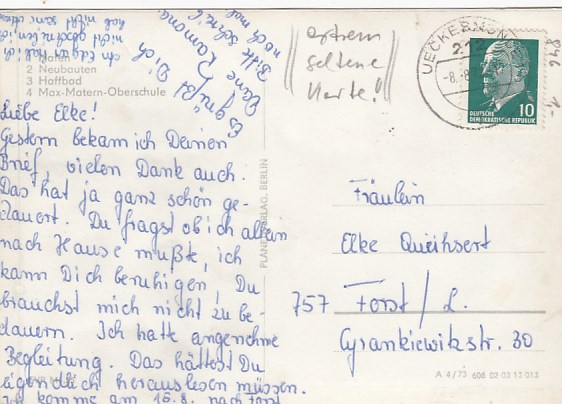 1 Hafen
2 Neubauten
3 Haffbad
4 Max-Matern-Oberschule
Liebe Elke!
Gestern bekam ich Deinen
Brief, vielen Dank auch.
Das hat ja ganz schön ge-
dauert. Du fragst ob ich allein
nach Hause mußte, ich
kann Dich beruhigen, Du
brauchst mich nicht zu be-
dauern. Ich hatte angenehme
Begleitung. Das hättest Du
eigendlich herauslesen müssen.
Ich komme am 16.8. nach Forst
Es grüßt Dich
Deine Ramona.
Bitte schreib
noch mal
PLANET-VERLAG, BERLIN
extrem
seltene
Karte!
UECKERMÜNDE
DEUTSCHE
DEMOKRATISCHE REPUBLIK
10
846
1.-
Fräulein
Elke
757 Forst / L.
Cyrankiewitzstr. 30
A 4/73 606 02 03 13 013